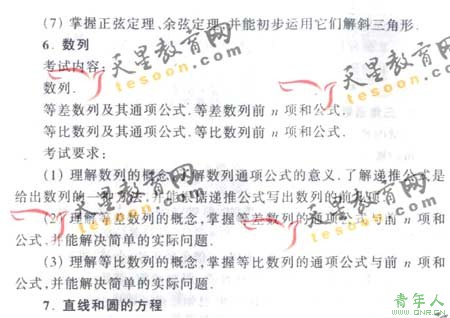 (7) 掌握正弦定理、余弦定理,并能初步运用它们解斜三角形.
6. 数列
考试内容:
数列.
等差数列及其通项公式.等差数列前 n 项和公式.
等比数列及其通项公式.等比数列前 n 项和公式.
考试要求:
(1) 理解数列的概念,了解数列通项公式的意义.了解递推公式是
给出数列的一种方法,并能根据递推公式写出数列的前几项.
(2) 理解等差数列的概念,掌握等差数列的通项公式与前 n 项和
公式,并能解决简单的实际问题.
(3) 理解等比数列的概念,掌握等比数列的通项公式与前 n 项和
公式,并能解决简单的实际问题.
7. 直线和圆的方程
天星教育网
tesoon.com
天星教育网
tesoon.com
天星教育网
tesoon.com
天星教育网
tesoon.com
青年人
WWW.QNR.CN